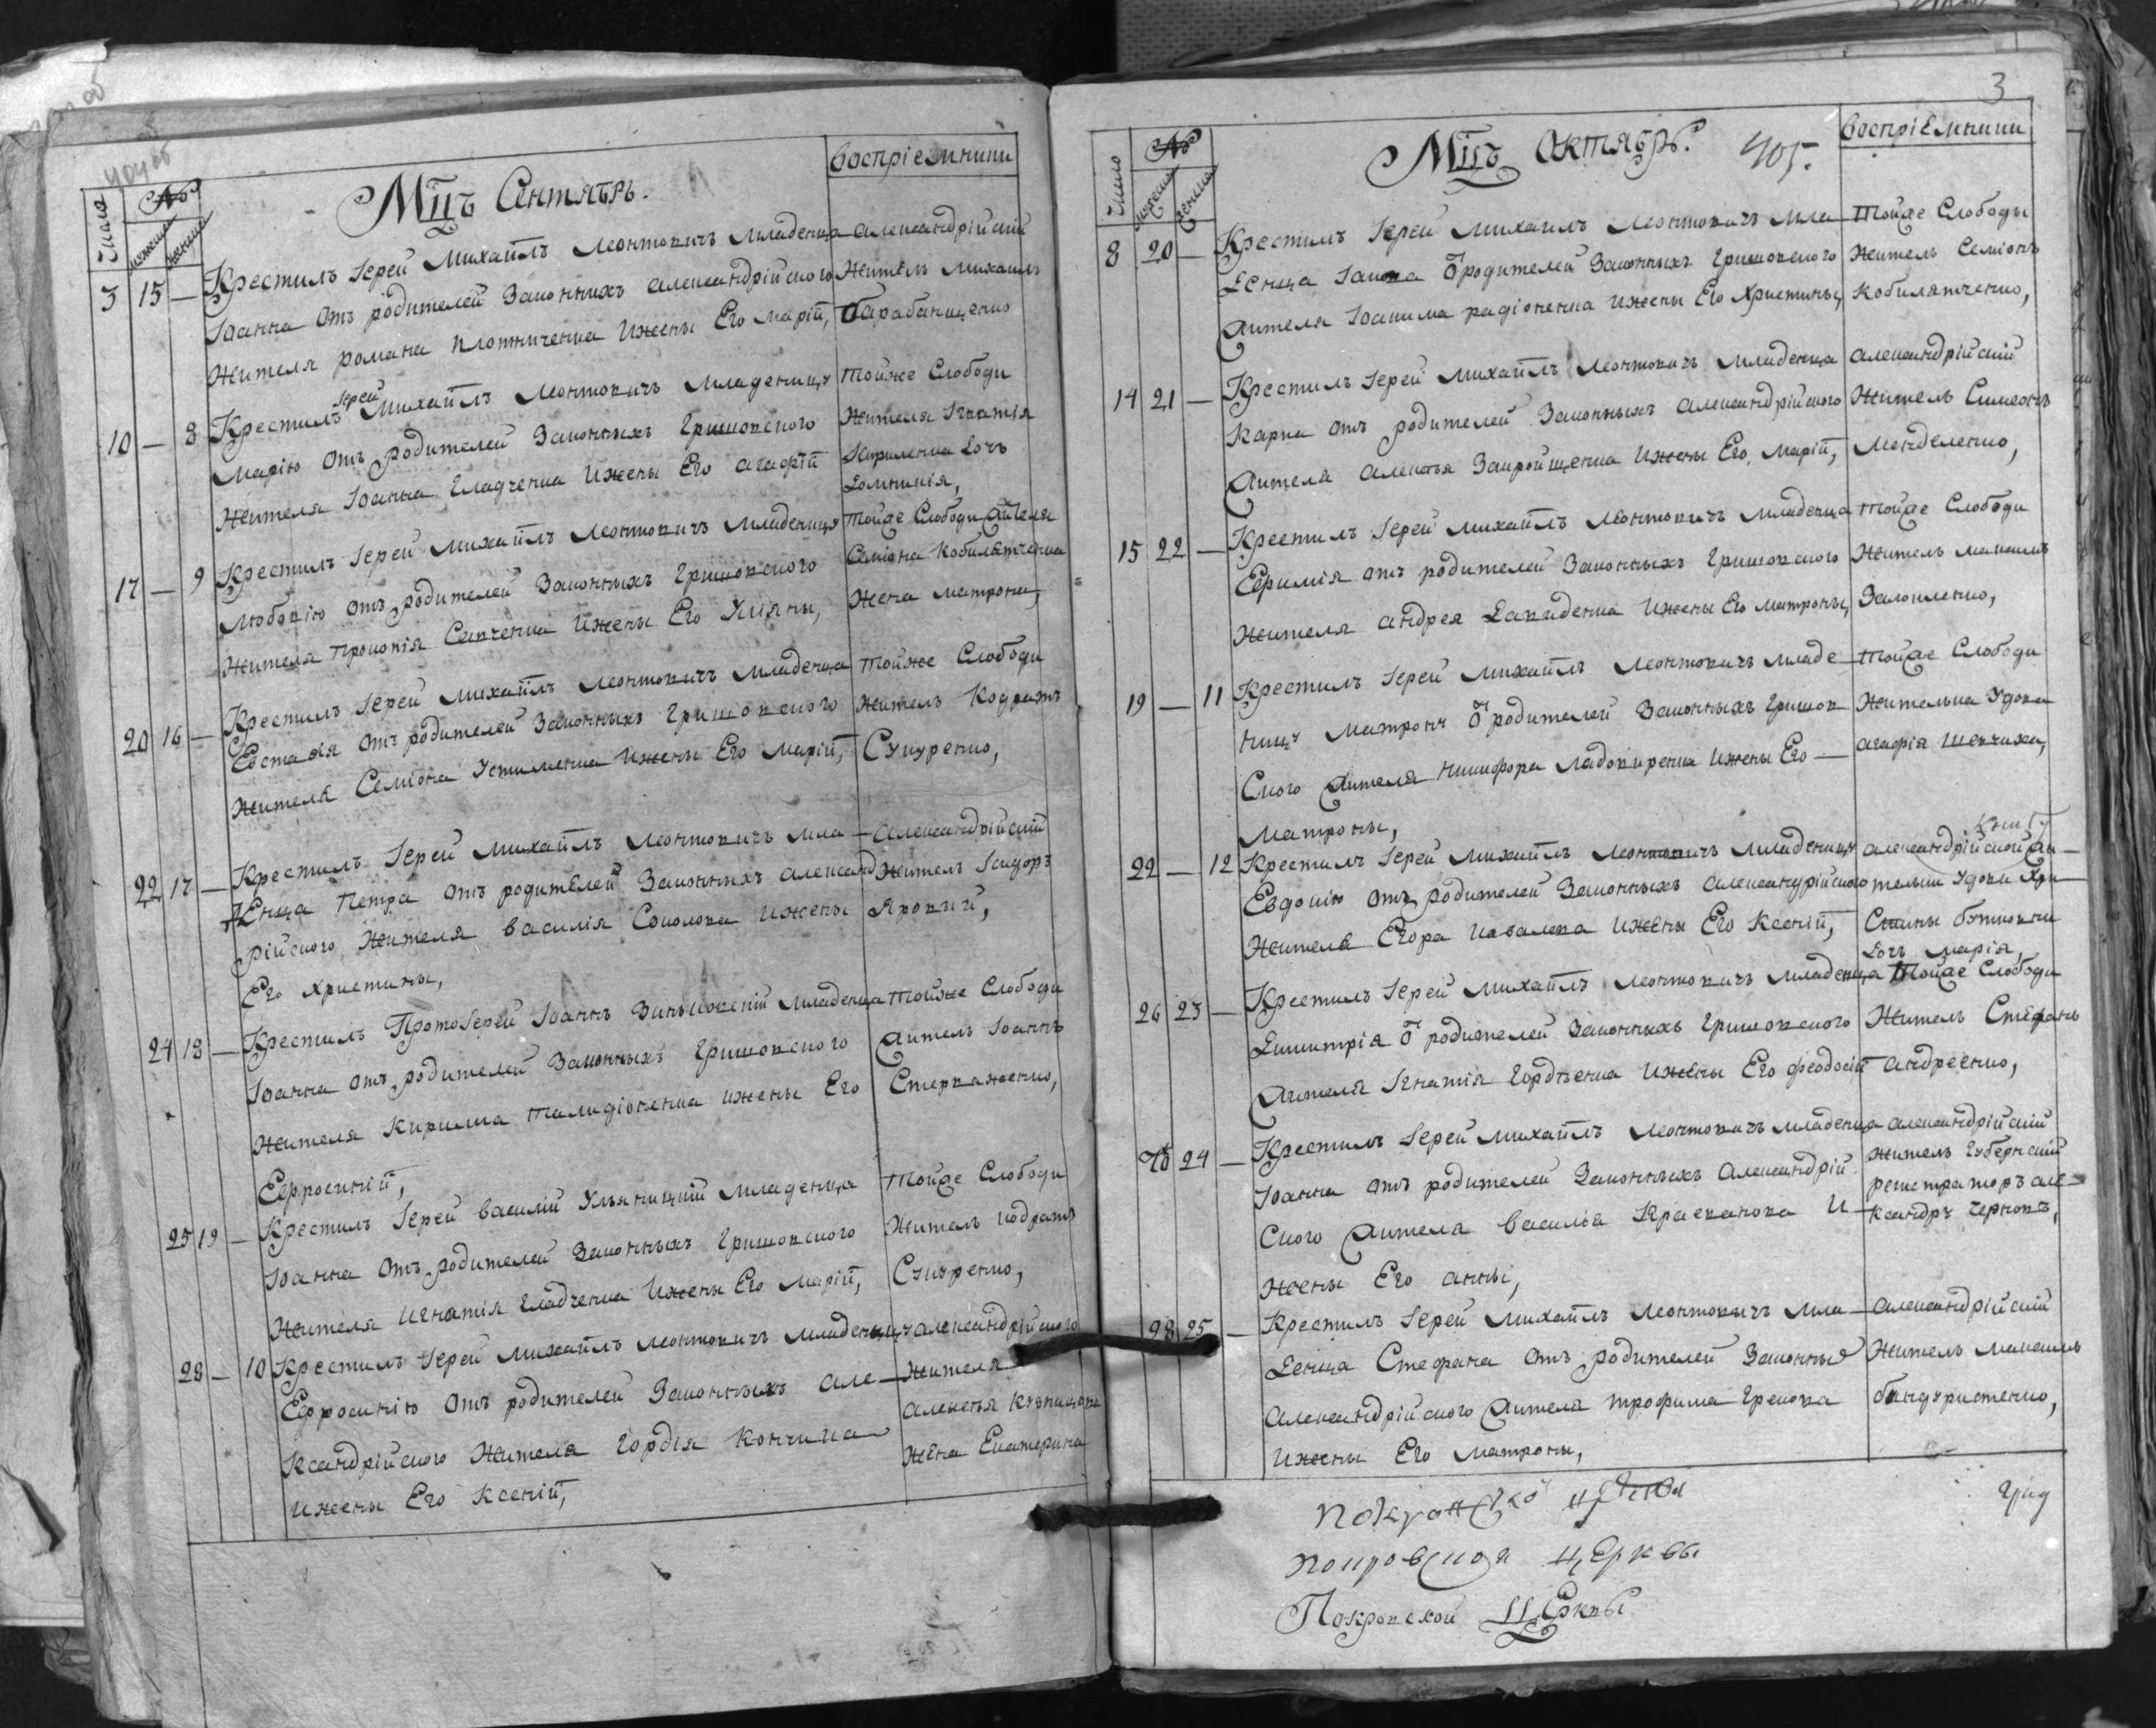 404 об
Мцъ Сентябрь.
воспріемники
Числа
№
мужеска
женска
3 15 — Крестилъ Іерей Михаилъ Леонтовичъ младенца
Іоанна отъ родителей законныхъ александрійского
жителя романа плотниченка ижены Его маріи,
александрійскій
житель михаилъ
Барабанщенко
10 — 8 Крестилъ Іерей Михаилъ Леонтовичъ младеницу
марію отъ родителей законныхъ Гришовского
жителя Іоанна Гладченка ижены Его агафіи
тойже Слободи
жителя Игнатія
Кириленка дочъ
домникія,
17 — 9 Крестилъ Іерей Михаилъ Леонтовичъ младеницу
любовію отъ родителей законныхъ Гришовского
жителя Прокопія Савченка ижены Его Уліяны,
тойже Слободи жителя
Семіона Кобилятченка
жена матрона,
20 16 — Крестилъ Іерей Михаилъ Леонтовичъ младенца
Евстафія отъ родителей законныхъ Гришовского
жителя Семіона Устименка ижены Его маріи,
тойже Слободи
житель Кодратъ
Сукуренко,
22 17 — Крестилъ Іерей Михаилъ Леонтовичъ мла–
денца Петра отъ родителей законныхъ александ
рійского жителя василія Соколова ижены
Его христины,
александрійскій
житель Ісидоръ
Яровий,
24 18 — Крестилъ ПротоІерей Іоаннъ Зиньковскій младенца
Іоанна отъ родителей законныхъ Гришовского
жителя Кирилла ижены Его
Ефросиніи,
тойже Слободи
житель Іоаннъ
25 19 — Крестилъ Іерей василій Ульяницкій младенца
Іоанна отъ родителей законныхъ Гришовского
жителя Игнатія Гладченка ижены Его маріи,
тойже Слободи
житель кодратъ
Сукуренко,
28 — 10 Крестилъ Іерей Михаилъ Леонтовичъ младеницу
Ефросинію отъ родителей законныхъ але–
ксандрійского жителя Гордія Кончика
ижены Его Ксеніи,
александрійского
жителя
алексѣя Кузницова
жена Екатерина
3
Мцъ Октябрь. 405.
воспріемники
Число
№
мужеска
женска
8 20 — Крестилъ Іерей Михаилъ Леонтовичъ мла–
денца Іакова Ѿ родителей законныхъ Гришовского
жителя Іоакима радіоненка ижены Его христины,
тойже Слободы
житель Семіонъ
Кобилятченко,
14 21 — Крестилъ Іерей Михаилъ Леонтовичъ младенца
Карпа отъ родителей законныхъ александрійского
жителя алексѣя Закройщенка ижены Его маріи,
александрійскій
житель Симеонъ
менделенко,
15 22 — Крестилъ Іерей Михаилъ Леонтовичъ младенца
Ефимія отъ родителей законныхъ Гришовского
жителя андрея давиденка ижены Его матроны,
тойже Слободи
житель
19 — 11 Крестилъ Іерей Михаилъ Леонтовичъ младе–
ницу матрону Ѿ родителей законныхъ Гришов
ского жителя никифора ижены Его —
матроны,
тойже Слободи
жителька Удова
агафія шевчиха,
22 — 12 Крестилъ Іерей Михаилъ Леонтовичъ младеницу
Евдокію отъ родителей законныхъ александрійского
жителя Егора ковалева ижены Его Ксеніи,
александрійской жи–
тельки Удови Хри–
стины
дочъ марія,
26 23 — Крестилъ Іерей Михаилъ Леонтовичъ младенца
димитрія Ѿ родителей законныхъ Гришовского
жителя Игнатія Гордѣенка ижены Его феодосіи
тойже Слободи
житель Стефанъ
андреенко,
24 — Крестилъ Іерей Михаилъ Леонтовичъ младенца
Іоанна отъ родителей законныхъ александрій
ского жителя василія и–
жены Его анны,
александрійскій
житель Губернскій
регистраторъ але–
ксандръ черновъ,
28 25 — Крестилъ Іерей Михаилъ Леонтовичъ мла–
денца Стефана отъ родителей законныя
александрійского жителя трофима Грекова
ижены Его матроны,
александрійскій
житель
бандуристенко,
Покровской
покровская церкви
Покровской Церкви